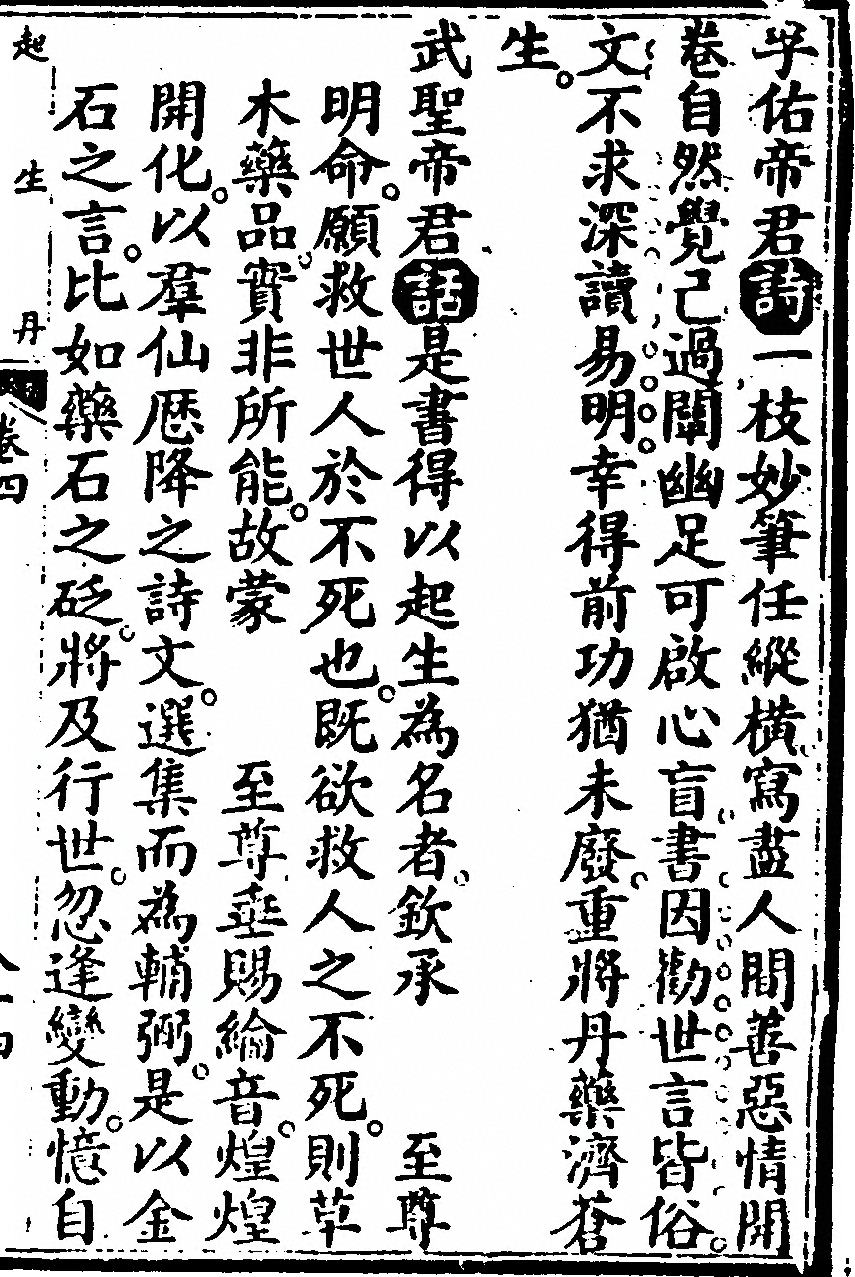 孚佑帝君詩一枝妙筆任縱橫寫盡人間善惡情開
卷自然覺己過闡幽足可啟心盲書因勸世言皆俗。
文不求深讀易明幸得前功猶未廢。重將丹藥濟蒼
生。
武聖帝君話是書得以起生為名者。欽承 至尊
明命。願救世人於不死也。既欲救人之不死。則草
木藥品。實非所能。故蒙 至尊垂賜綸音。煌煌
開化。以羣仙歷降之詩文。選集而為輔弼。是以金
石之言。比如藥石之砭。將及行世。忽逢變動。憶自
起 生 丹 卷四